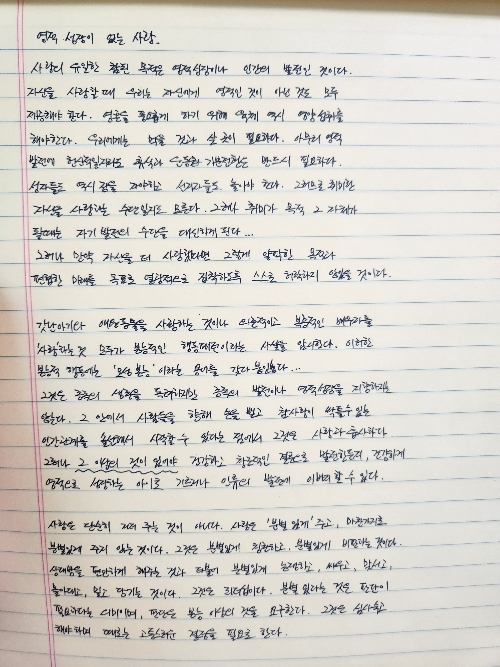 영적 성장이 없는 사랑.
사랑의 유일한 참된 목적은 영적성장이나 인간의 발전인 것이다.
자신을 사랑할 때 우리는 자신에게 영적인 것이 아닌 것도 모두
제공해야 한다. 영혼을 풍요롭게 하기 위해 육체 역시 영양섭취를
해야한다. 우리에게는 먹을 것과 살 곳이 필요하다. 아무리 영적
발전에 헌신적일지라도 휴식과 운동과 기분전환은 반드시 필요하다.
성자들도 역시 잠을 자야하고 선지자들도 놀아야 한다. 그러므로 취미란
자신을 사랑하는 수단일지도 모른다. 그러나 취미가 목적 그 자체가
될때는 자기 발전의 수단을 대신하게 된다...
그러나 만약 자신을 더 사랑했다면 그렇게 얄팍한 목적과
편협한 미래를 목표로 열광적으로 집착하도록 스스로 허락하지 않았을 것이다.
갓난아기나 애완동물을 사랑하는 것이나 의존적이고 복종적인 배우자를
'사랑'하는 것 모두가 본능적인 행동패턴이라는 사실을 암시한다. 이러한
본능적 행동에는 '모성 본능' 이라는 용어를 갖다 붙인다...
그것은 종족의 생존을 독려하지만 종족의 발전이나 영적성장을 지향하지는
않는다. 그 안에서 사람들을 향해 손을 뻗고 참사랑이 싹틀수 있는
인간관계를 통해서 시작할 수 있다는 점에서 그것은 사랑과 흡사하다
그러나 그 이상의 것이 있어야 건강하고 창조적인 결혼으로 발전한든지, 건강하게
영적으로 성장하는 아이로 기르거나 인류의 발전에 이바지 할 수 있다.
사랑은 단순히 거저 주는 것이 아니다. 사랑은 '분별 있게' 주고, 마찬가지로
분별있게 주지 않는 것이다. 그것은 분별있게 칭찬하고, 분별있게 비판하는 것이다.
상대방을 편안하게 해주는 것과 더불어 분별있게 논쟁하고, 싸우고, 맞서고,
몰아대고, 밀고 당기는 것이다. 그것은 리더십이다. 분별 있다는 것은 판단이
필요하다는 의미이며, 판단은 본능 이상의 것을 요구한다. 그것은 심사숙고
해야하며 때로는 고통스러운 결정을 필요로 한다.